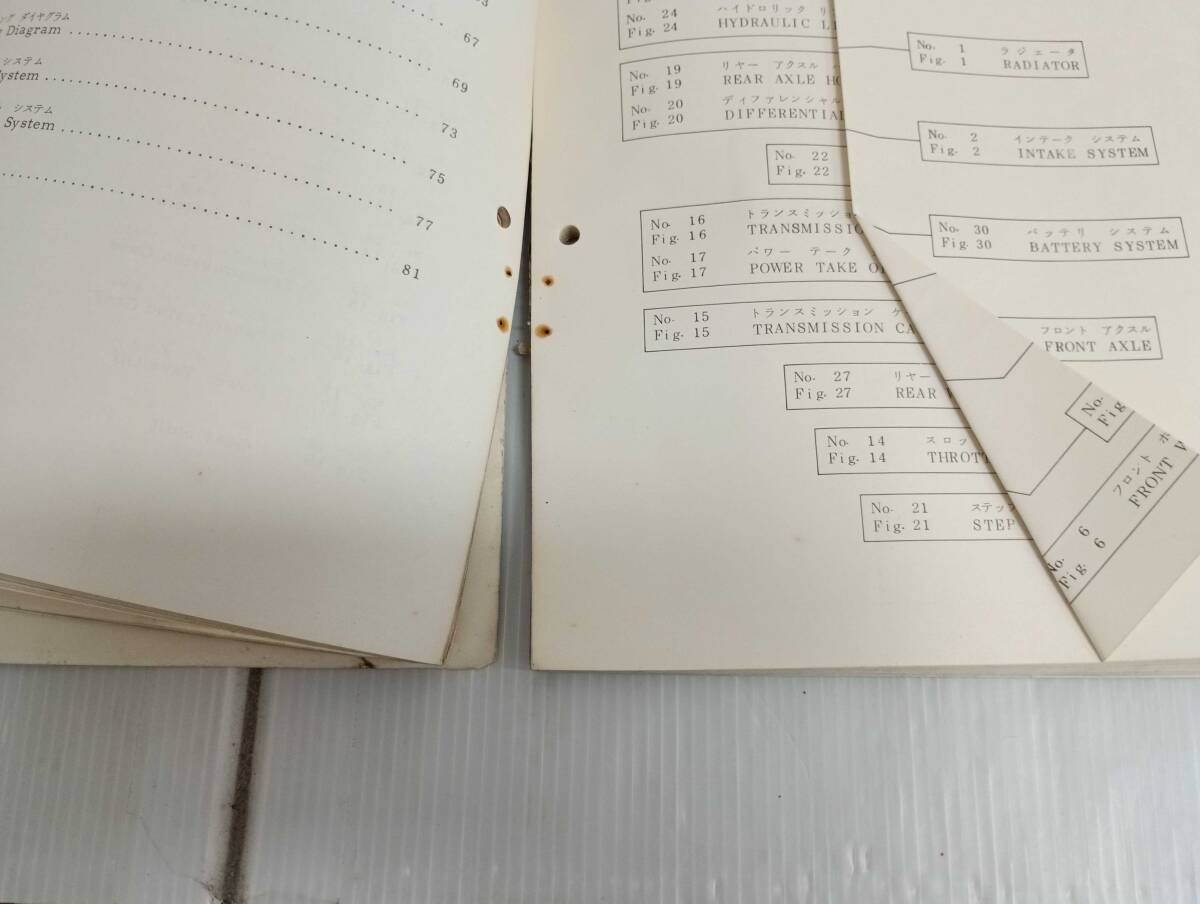 67
ダイヤグラム
Diagram
69
システム
ystem
73
システム
System
75
77
81
No. 24 ハイドロリック
Fig. 24 HYDRAULIC
No. 19 リヤー アクスル
Fig. 19 REAR AXLE
No. 20 ディファレンシャル
Fig. 20 DIFFERENTIAL
No. 22
Fig. 22
No. 16 トランスミッション
Fig. 16 TRANSMISSIO
No. 17 パワー テーク
Fig. 17 POWER TAKE
No. 15 トランスミッション
Fig. 15 TRANSMISSION CA
No. 27 リヤー
Fig. 27 REAR
No. 14 スロッ
Fig. 14 THROTT
No. 21 ステッ
Fig. 21 STEP
No. 1 ラジェータ
Fig. 1 RADIATOR
No. 2 インテーク システム
Fig. 2 INTAKE SYSTEM
No. 30 バッテリ システム
Fig. 30 BATTERY SYSTEM
フロント アクスル
FRONT AXLE
No.
Fig
No. 6 フロント ホ
Fig. 6 FRONT